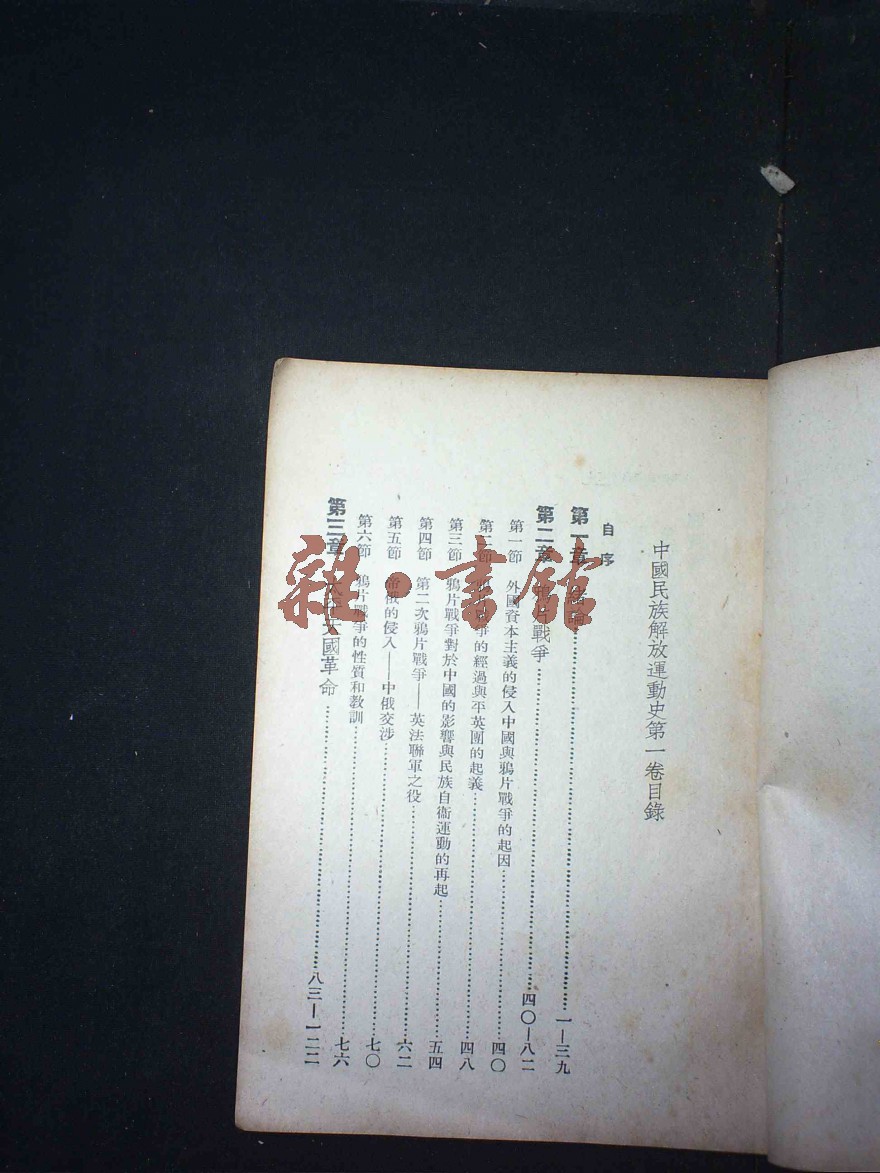 中國民族解放運動史第一卷目錄
自序
第一章 緒論 一—三九
第二章 鴉片戰爭 四〇—八二
第一節 外國資本主義的侵入中國與鴉片戰爭的起因 四〇
第二節 鴉片戰爭的經過與平英團的起義 四八
第三節 鴉片戰爭對於中國的影響與民族自衞運動的再起 五四
第四節 第二次鴉片戰爭——英法聯軍之役 六二
第五節 帝俄的侵入——中俄交涉 七〇
第六節 鴉片戰爭的性質和教訓 七六
第三章 太平天國革命 八三—一二二
雜·書館